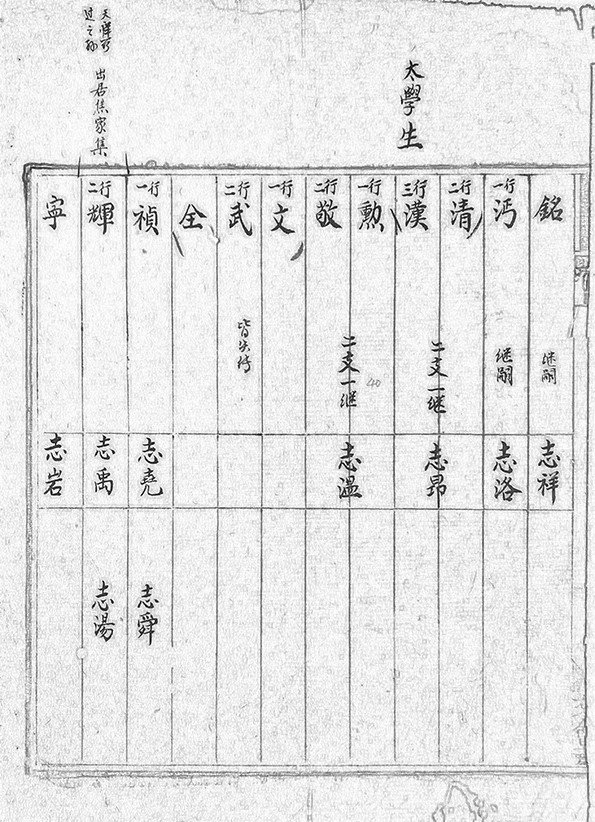 太學生
出居焦家集
銘
継嗣
志祥
一行
沔
継嗣
志洛
二行
清
三行
漢
二支一継
志昂
一行
勲
二行
敬
二支一継
40
志溫
一行
文
二行
武
皆失传
全
一行
禎
志堯
志舜
二行
輝
志禹
志湯
寜
志岩